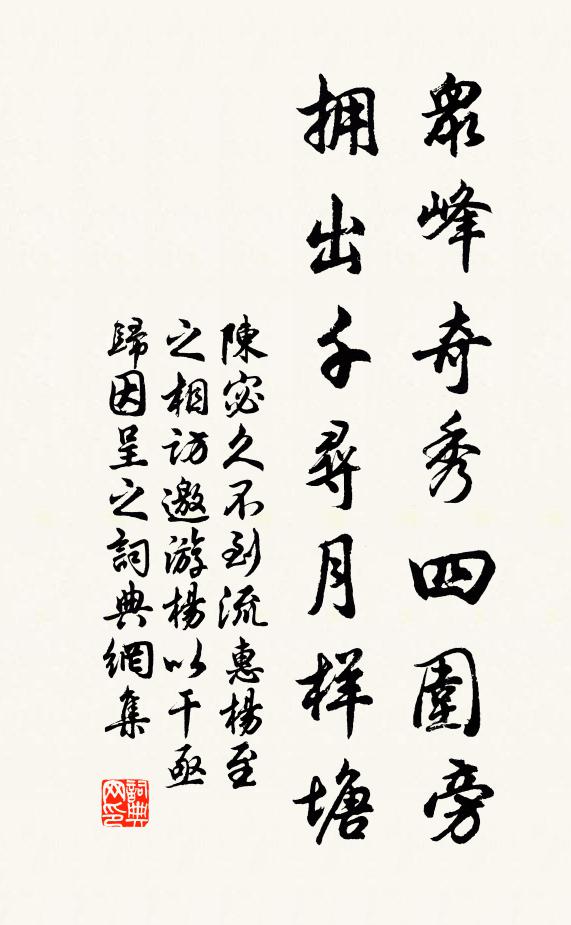 眾峰奇秀四圍旁
拥出千尋月样塘
陳宓久不到流惠楊至
之相訪邀游楊以干亟
歸因呈之詞典網集
詞典
网印